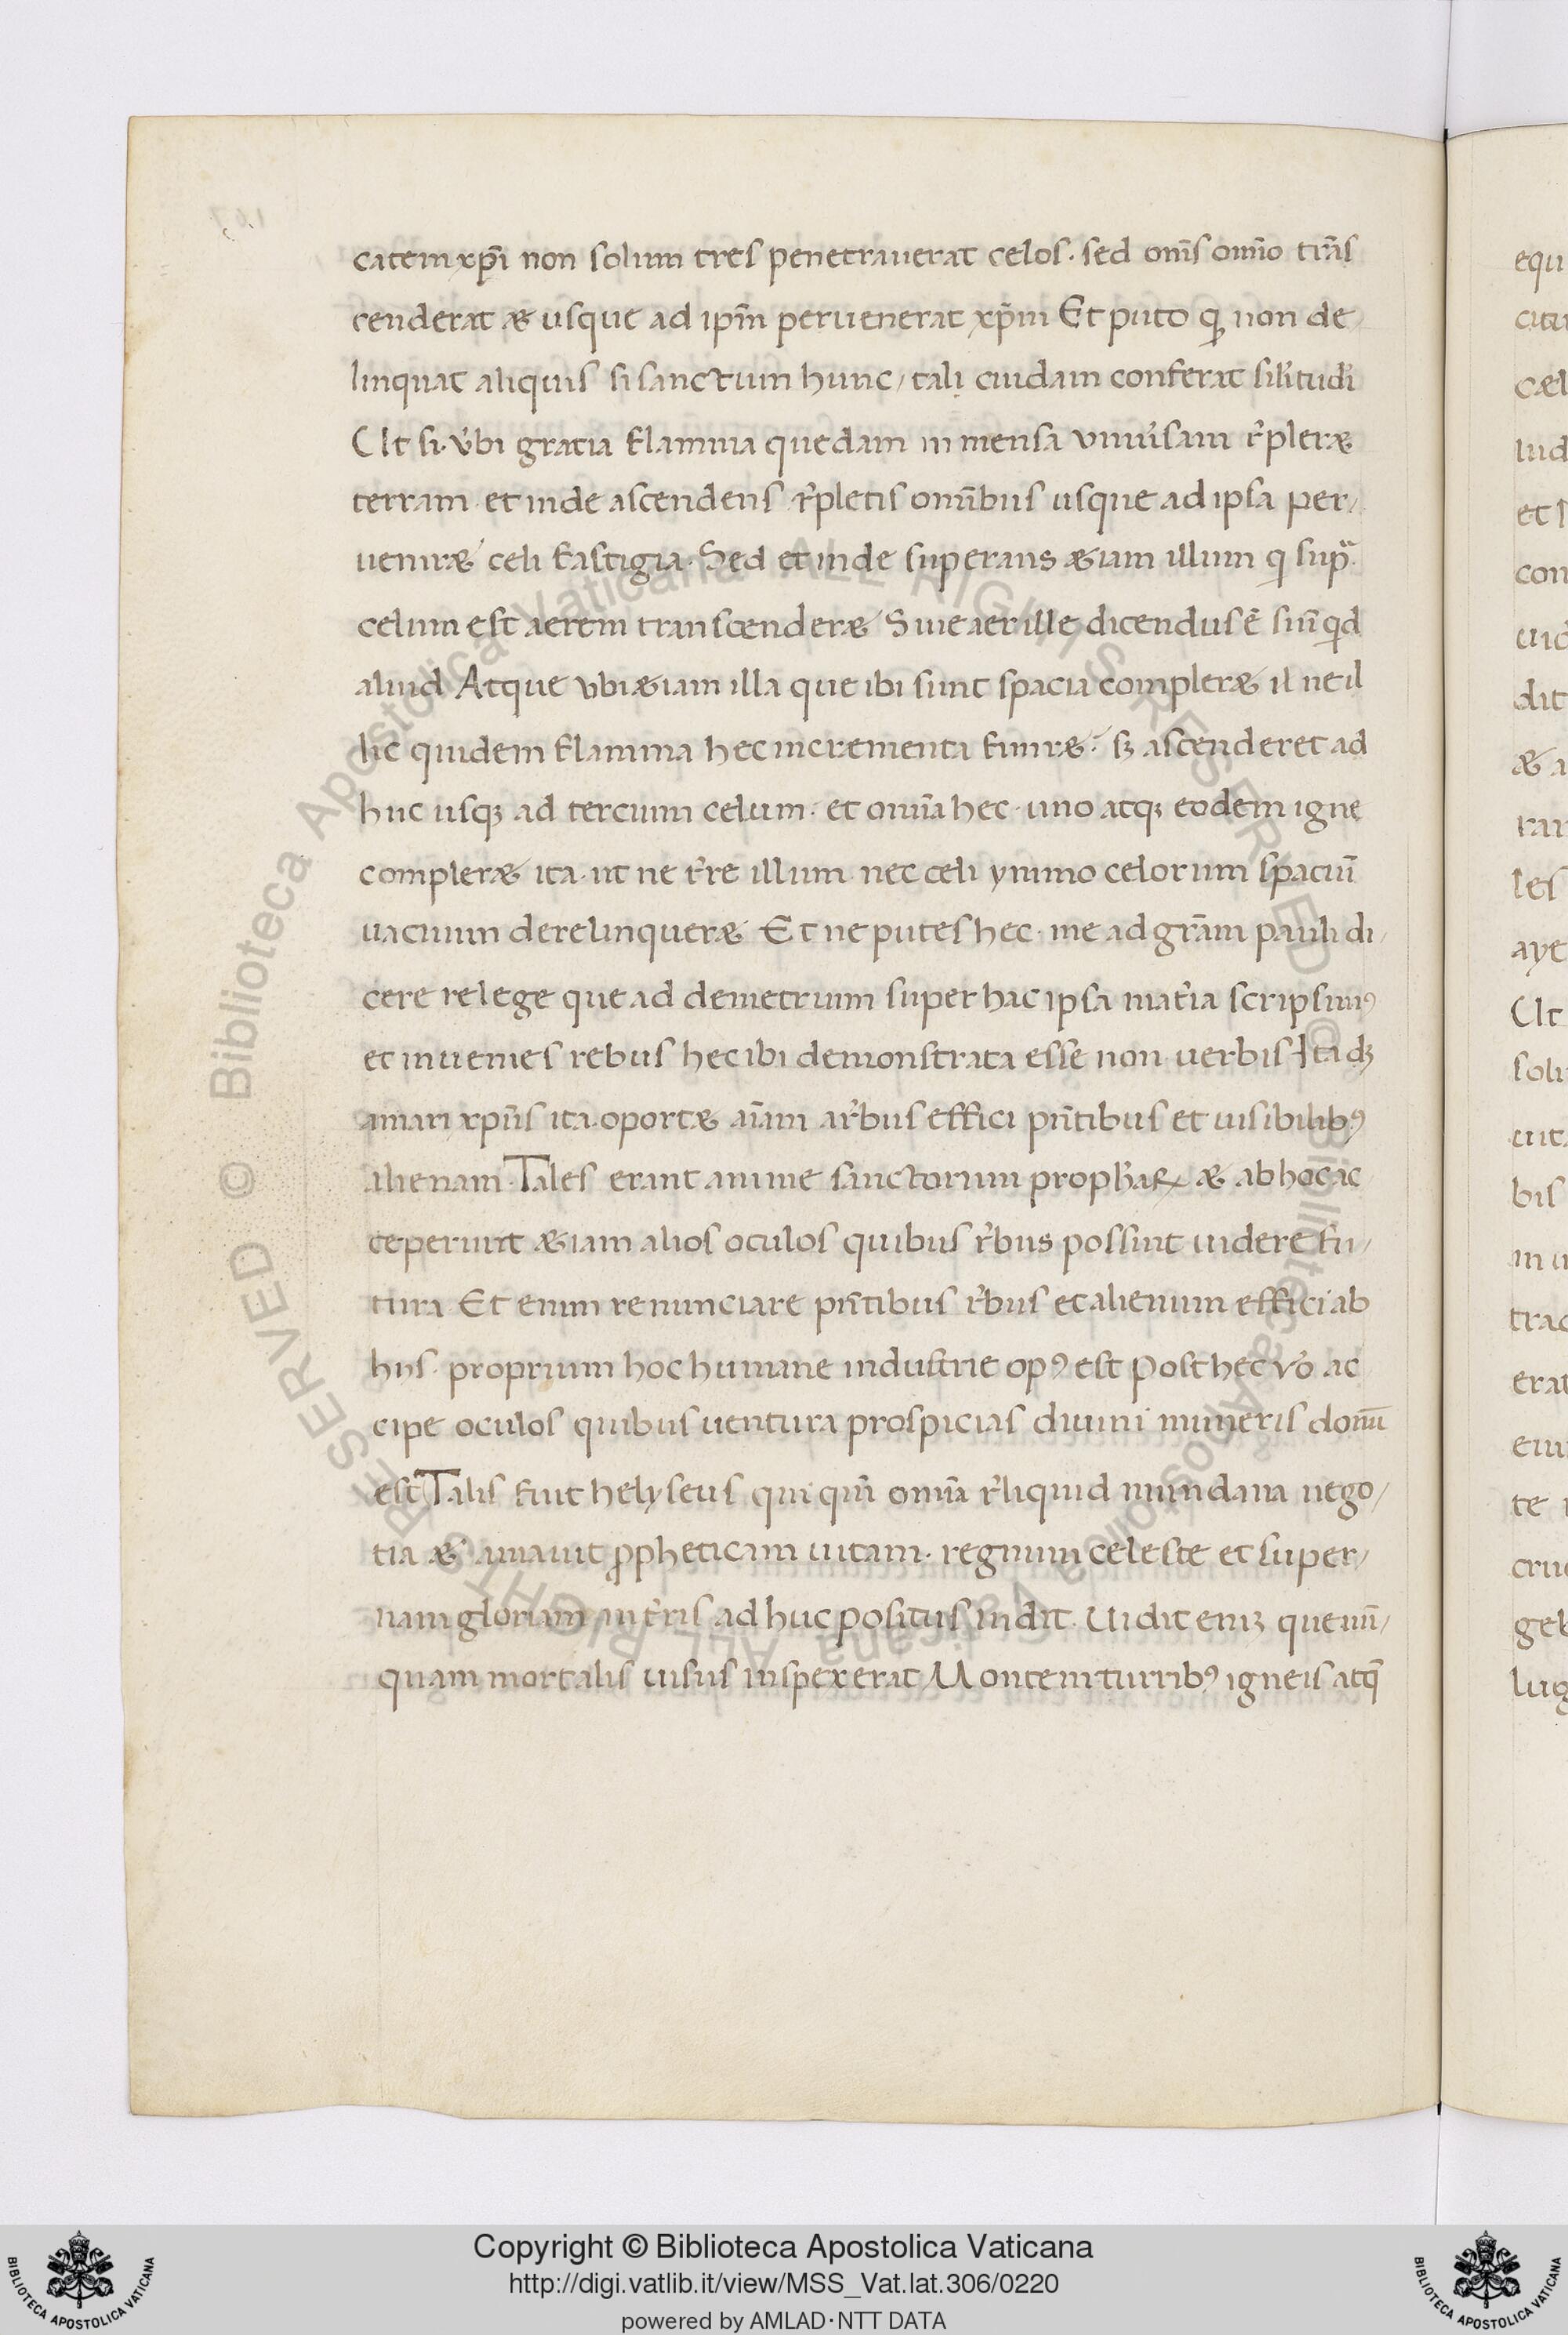 catem xp̄i non solum tres penetrauerat celos. sed om̄s om̄io trās
cenderat & usque ad ip̄m peruenerat xp̄m Et puto q̨ non de
linquat aliquis si sanctum hunc / tali cuidam conferat sil̄itudī
Ut si. v̓bi gratia flamma quedam in mensa vniu̓sam r̓pler&
terram. et inde ascendens r̓pletis om̄ibus usque ad ipsa per/
uenir& celi fastigia. Sed et inde superans &iam illum q supᵃ
celum est aerem transcender& Siue aer ille dicendus ē siū qid
aliud Atque vbi &iam illa que ibi sunt spacia compler& il ne il
lic quidem flamma hec incrementa finir&. sꝫ ascenderet ad
huc usqꝫ ad tercium celum. et om̄ia hec. uno atqꝫ eodem igne
compler& ita. ut ne r̓re illum nec celi ymmo celorum spaciū
uacuum derelinquer& Et ne putes hec. me ad grām pauli di/
cere relege que ad demetrium super hac ipsa mat̓ia scripsimꝰ
et inuenies rebus hec ibi demonstrata esse non uerbis Ita dꝫ
amari xp̄us ita. oport& aīam a r̓bus effici pn̄tibus et uisibilibꝰ
alienam. Tales erant anime sanctorum propħaꝝ & ab hoc ac
ceperunt &iam alios oculos quibus r̓bus possint uidere fu/
tura Et enim renunciare pn̄tibus r̓bus et alienum effici ab
hiis. proprium hoc humane industrie opꝰ est Post hec v̓o ac
cipe oculos quibus uentura prospicias diuini muneris donū
est Talis fuit helyseus qui qm̄ om̄ia r̓liquid mundana nego/
tia & amauit ꝓpheticam uitam. regnum celeste et super/
nam gloriam in t̓ris ad huc positus uidit. Uidit enīꝫ que nū/
quam mortalis uisus inspexerat Montem turribꝰ igneis atq̄
equ
cæl
lud
et s
con
uid
dit
& a
ran
les
aye
Ut
soli
bis
in u
trac
erat
te
cruc
geb
lug
Copyright © Biblioteca Apostolica Vaticana
http://digi.vatlib.it/view/MSS_Vat.lat.306/0220
powered by AMLAD·NTT DATA
BIBLIOTECA APOSTOLICA VATICANA
BIBLIOTECA APOSTOLICA VATICANA
© Biblioteca Apostolica Vaticana ALL RIGHTS RESERVED
© Biblioteca Apostolica Vaticana ALL RIGHTS RESERVED